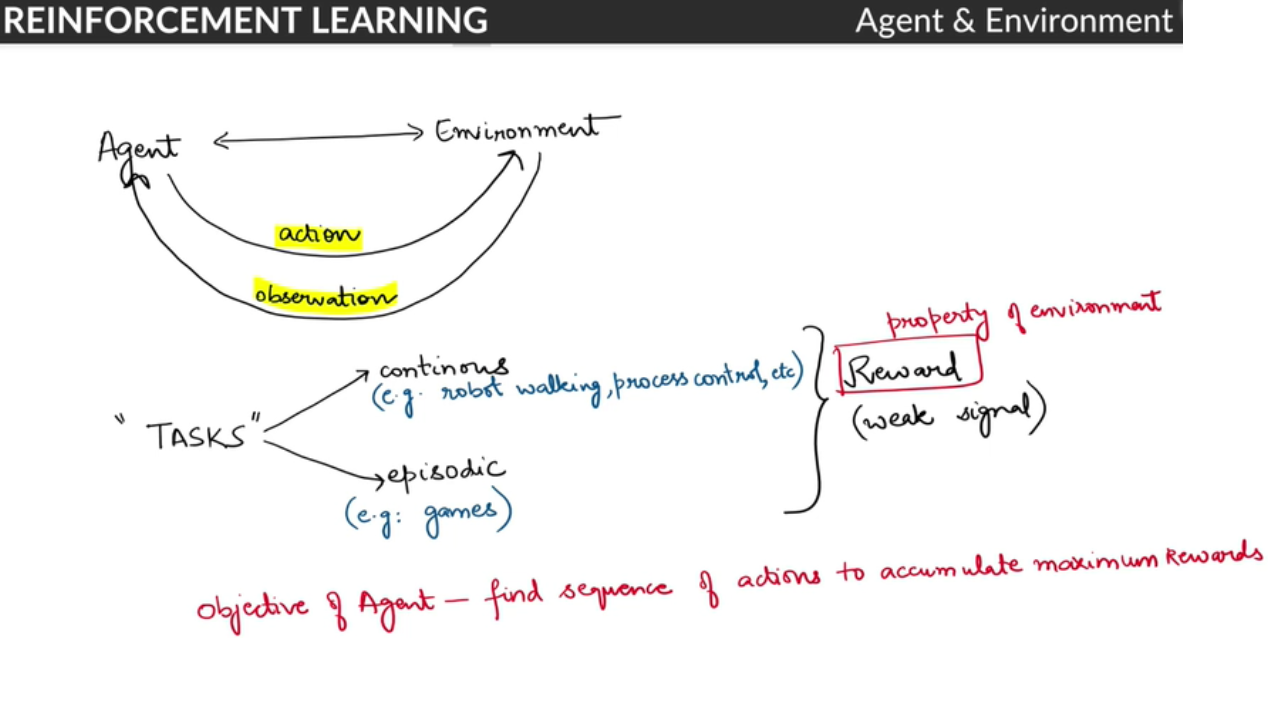 REINFORCEMENT LEARNING
Agent & Environment
Agent
Environment
action
observation
property of environment
continous
(e.g. robot walking, process control, etc)
Reward
(weak signal)
" TASKS "
episodic
(e.g: games)
Objective of Agent — find sequence of actions to accumulate maximum Rewards